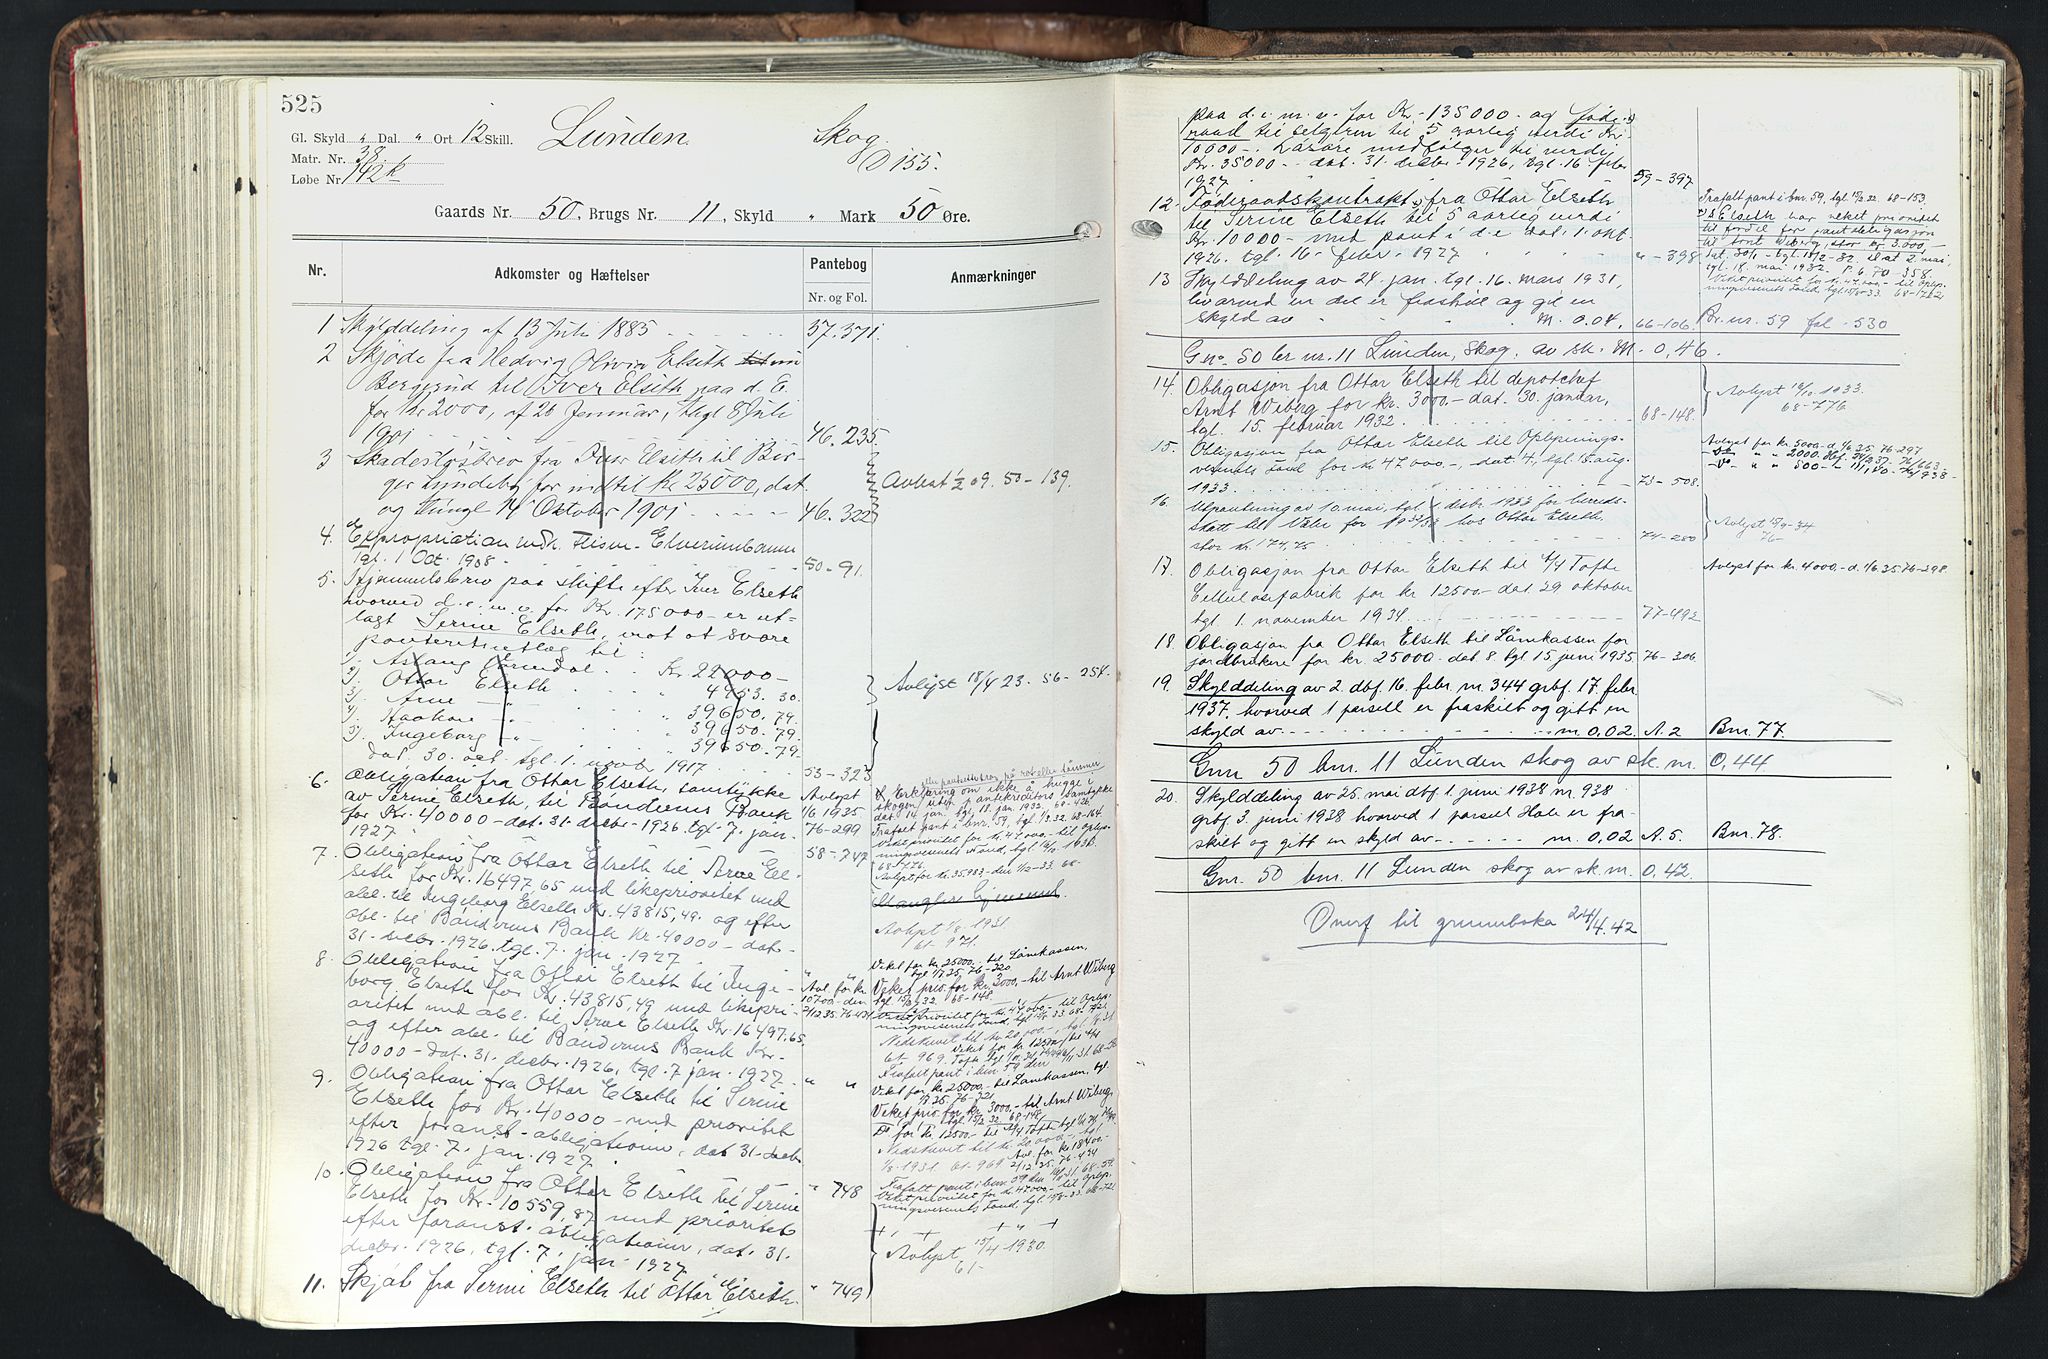 525
Gl. Skyld " Dal. " Ort 12 Skill.
Matr. Nr. 38
Løbe Nr. 142k
Lunden.
Skog.
D 155.
Gaards Nr. 50, Brugs Nr. 11, Skyld " Mark 50 Øre.
Nr.
Adkomster og Hæftelser
Pantebog
Nr. og Fol.
Anmærkninger
1 Skylddeling af 13 Juli 1885 37.371.
2 Skjøde fra Hedvig Olivia Elseth
Bergerud til Iver Elseth paa d. E.
for Kr 2000, af 26 Januar, tingl 8 Juli
1901 46.235.
3 Skadesløsbrev fra Iver Elseth til Bir-
ger Lundeby for indtil Kr 25000, dat.
og tingl 14 Oktober 1901 46.322
Avlest ½ 09. 50-139.
4. Expropriation vedk. Flisen-Elverumbanen
tgl. 1 Oct. 1908 50-91.
5. Hjemmelsbrev paa skifte efter Iver Elseth
hvorved d.e.m.v. for Kr. 175000- er ut-
lagt Serine Elseth, mot at svare
panteretsutlæg til:
1). Aslaug Kr 22000-
2). Ottar Elseth 4953.30.
3). Arne -"- 39650.79.
4). Haakon -"- 39650.79.
5). Ingeborg -"- 39650.79.
Avlyst 18/4 23. 56-254.
dat. 30. oct. tgl. 1. novb. 1917 53-323
6. Obligation fra Ottar Elseth, samtykke
av Serine Elseth, til Bøndernes Bank
for Kr. 40000- dat. 31. decbr. 1926, tgl. 7. jan.
1927
Avlyst
1/6 1935
76-299
Erklæring om ikke å hugge i
skogen uten panteskreditors samtykke
dat. 14 jan. tgl. 18. jan. 1932. 68-426
Frafalt pant i bnr. 59, tgl 68-164.
Veket prioritet for Kr. 47000.- til Oplys-
ningsvesenets Fond,
68-776
Avlyst for kr. 35.983-
7. Obligation fra Ottar Elseth til Arne El- 58-747
seth for Kr. 16497,65 med likeprioritet med
obl. til Ingeborg Elseth Kr. 43815,49. og efter
obl. til Bøndernes Bank Kr. 40000- dat.
31. decbr. 1926. tgl. 7. jan. 1927.
Avlyst 1/8 1931.
61-971.
8. Obligation fra Ottar Elseth til Inge-
borg Elseth for Kr. 43815,49 med likepri-
oritet med obl. til Arne Elseth Kr. 16497,65
og efter obl. til Bøndernes Bank Kr.
40000- dat. 31. decbr. 1926, tgl. 7 jan. 1927.
Avl. for kr.
10700- den
2/12 35. 76-431
Veket for kr. 25000.- til Lånekassen,
76-320
Veket prio. for kr. 3000,- til Arnt Wiberg
tgl. 15/2 32. 68-148.
Nedskrevet til kr. 20,000.-, tgl. 1/8 31
61-969.
Frafalt pant i bnr 59 den
9. Obligation fra Ottar Elseth til Serine " "
Elseth for Kr. 40000- med prioritet
efter foranst. obligationer, dat 31. decbr.
1926 tgl. 7. jan. 1927.
Veket for kr. 25000.- til Lånekassen, tgl.
76-321
Veket prio. for kr. 3000.- til Arnt Wiberg.
tgl 15/2 32. 68-148
Nedskrevet til kr. 20.000.-, tgl
1/8-1931. 61-969
Avl. for kr 18400.-
2/12 35. 76-434
10. Obligation fra Ottar Elseth til Serine " 748
Elseth for Kr. 10559,87 med prioritet
efter foranst. obligationer, dat. 31.
decbr. 1926, tgl. 7. jan. 1927
Avlyst 15/4 1930.
61-
11. Skjøt fra Serine Elseth til Ottar Elseth. " 749
paa d.e.m.v. for Kr. 135000.- og føde-
raad til selgeren til 5 aarlig verdi Kr.
10000-. Løsøre medfølger til verdi
Kr. 35000- dat. 31. decbr. 1926, tgl. 16. febr.
1927 59-397
12. Føderaadskontrakt fra Ottar Elseth
til Serine Elseth til 5 aarlig verdi
Kr. 10000- med pant i d.e. dat. 1. okt.
1926. tgl. 16. febr. 1927 " - 398
Frafalt pant i bnr. 59, tgl 68-153
S. Elseth har veket prioritet
til fordel for panteobligasjon
til Arnt Wiberg, stor kr. 3.000,-
tgl. 18. mai 1932. P. b. 70-358.
Veket prioritet for kr. 47.000.- til Oplys-
ningsvesenets Fond,
13 Skylddeling av 24. jan. tgl. 16. mars 1931,
hvorved en del er fraskilt og gitt en
skyld av M. 0.04. 66-106. Br. nr. 59 fol. 530
Gno. 50 br. nr. 11 Lunden, skog, av sk. M. 0,46.
14. Obligasjon fra Ottar Elseth til depotchef
Arnt Wiberg for kr. 3000.- dat. 30. januar,
tgl. 15. februar 1932. 68-148.
Avlyst 1933.
68-776
15. Obligasjon fra Ottar Elseth til Oplysnings-
vesenets fond for kr 47.000.-, dat. 4, tgl. 15. aug.
1933. 73-508.
Avlyst for kr. 3000.- d. 1/6 35. 76-297
16. Utpantning av 10. mai, tgl. desbr. 1933 for herreds-
skatt til Våler for 1932/33 hos Ottar Elseth.
stor kr. 174,75 74-280
Avlyst 15/9-34
76-
17. Obligasjon fra Ottar Elseth til A/S Tofte
Cellulosefabrik for kr 12500- dat 29 oktober
tgl. 1. november 1934 77-492
Avlyst for kr. 4000.- d. 1/6 35. 76-298.
18. Obligasjon fra Ottar Elseth til Lånekassen for
jordbrukere for kr. 25000- dat. 8 tgl. 15. juni 1935. 76-306
19. Skylddeling av 2. dbf. 16. febr. nr. 344 grbf. 17. febr.
1937, hvorved 1 parsell er fraskilt og gitt en
skyld av m. 0,02 A. 2 Bnr. 77.
Gnr. 50 bnr. 11 Lunden skog av sk. m. 0,44
20. Skylddeling av 25. mai dbf. 1. juni 1938 nr. 938
grbf. 3. juni 1938 hvorved 1 parsel er fra-
skilt og gitt en skyld av m. 0,02 A. 5. Bnr. 78.
Gnr. 50 bnr. 11 Lunden skog av sk. m. 0,42.
Overf til grunnboka 24/4.42